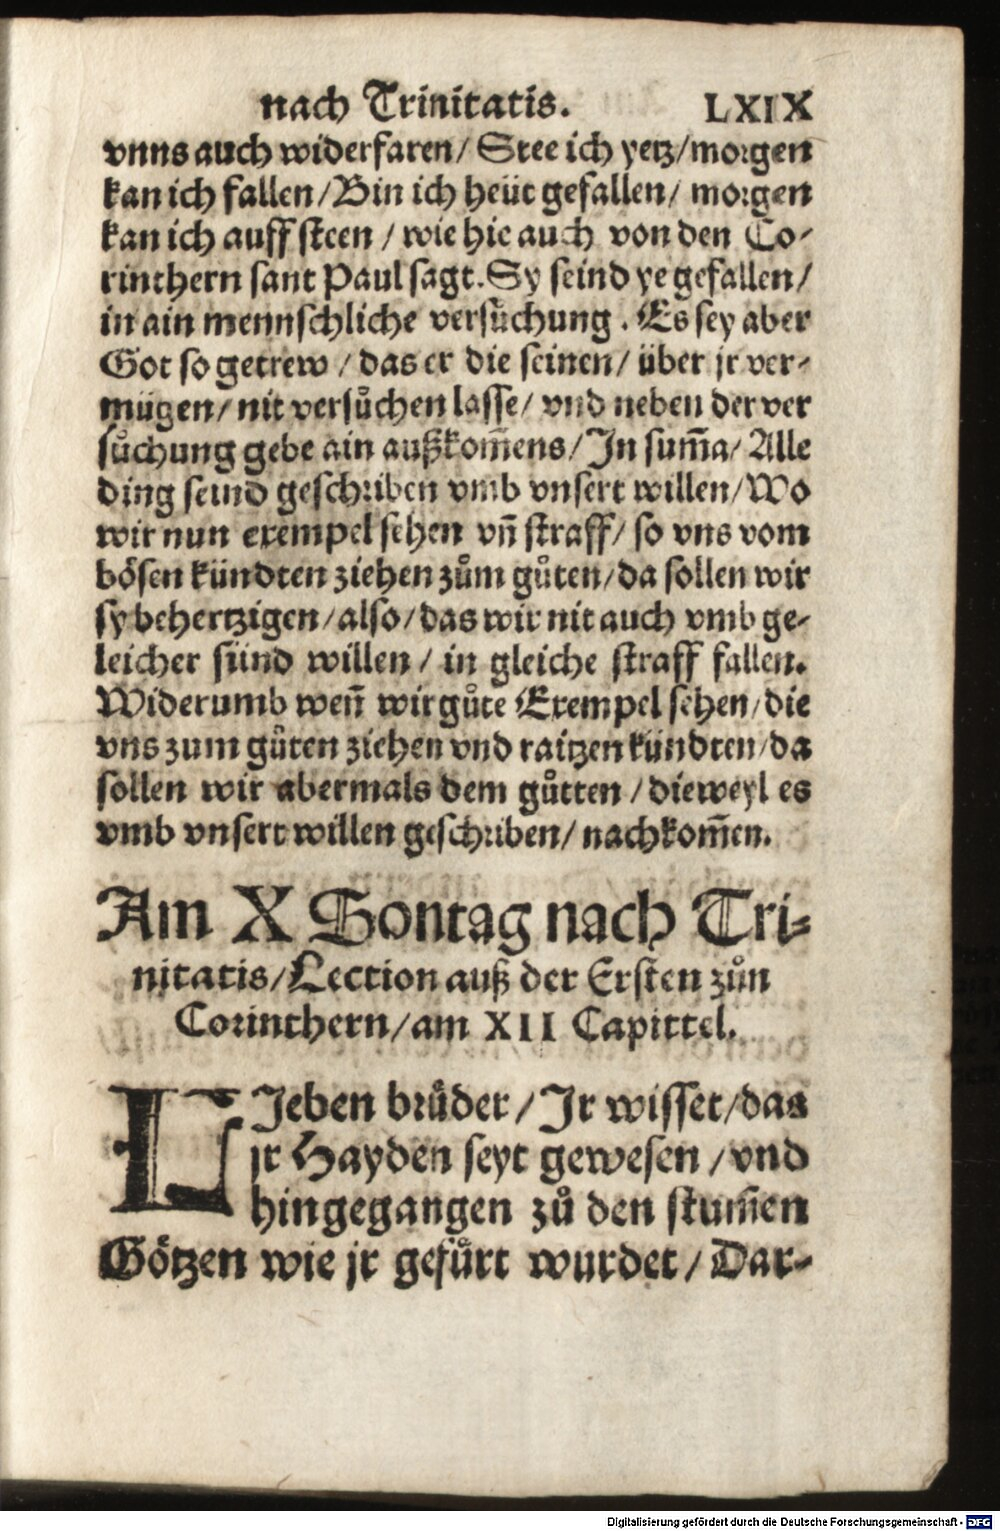 nach Trinitatis. LXIX
vnns auch widerfaren/ Stee ich yetz/morgen
kan ich fallen/Bin ich heüt gefallen/ morgen
kan ich auff steen / wie hie auch von den Co-
rinthern sant Paul sagt. Sy seind ye gefallen/
in ain mennschliche versůchung. Es sey aber
Got so getrew / das er die seinen/ über jr ver-
mügen/ nit versůchen lasse/ vnd neben der ver
sůchung gebe ain außkom̄ens/ In sum̄a/ Alle
ding seind geschriben vmb vnsert willen/ Wo
wir nun exempel sehen vñ straff/ so vns vom
bösen kündten ziehen zům gůten/da sollen wir
sy behertzigen/also/das wir nit auch vmb ge-
leicher sünd willen / in gleiche straff fallen.
Widerumb weñ wir gůte Exempel sehen/die
vns zum gůten ziehen vnd raitzen kündten/da
sollen wir abermals dem gůtten / dieweyl es
vmb vnsert willen geschriben/ nachkom̄en.
Am X Sontag nach Tri-
nitatis/Lection auß der Ersten zůn
Corinthern/am XII Capittel.
LIeben brůder/ Ir wisset/das
jr Hayden seyt gewesen /vnd
hingegangen zů den stum̄en
Götzen wie jr gefůrt wurdet/ Dar-
Digitalisierung gefördert durch die Deutsche Forschungsgemeinschaft - DFG